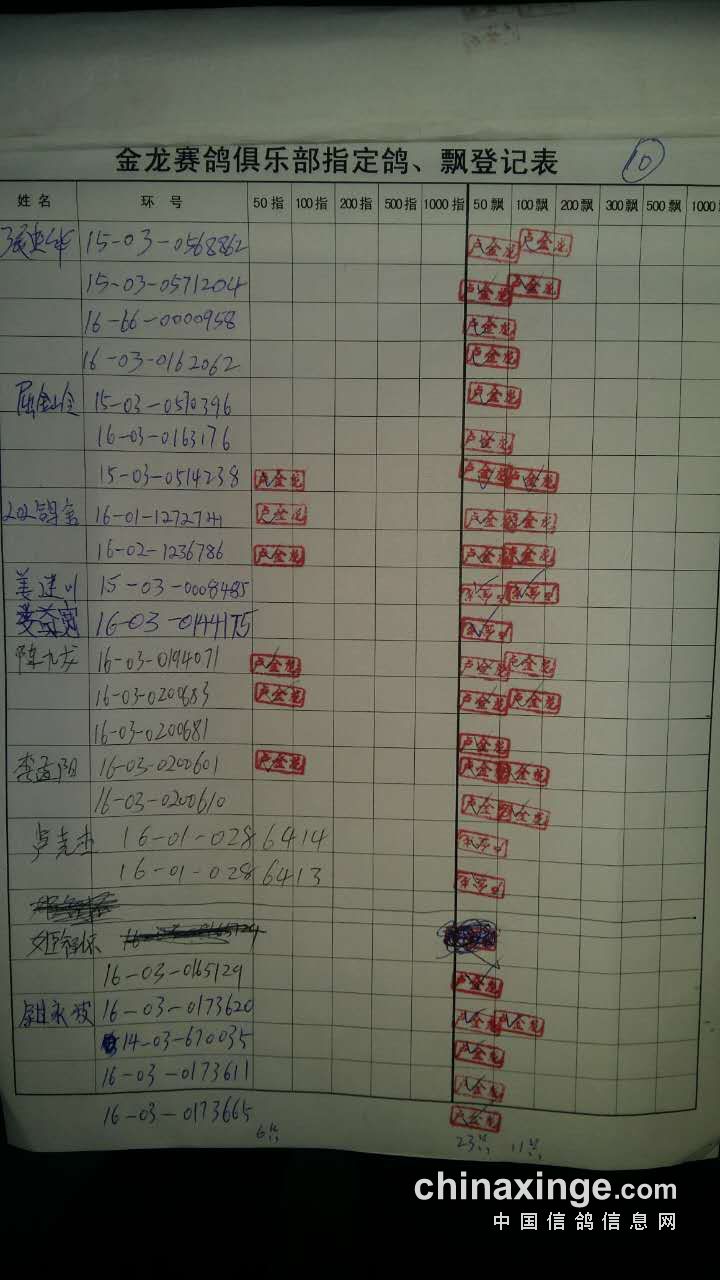 金龙赛鸽俱乐部指定鸽、飘登记表 10
姓名 环号 50指 100指 200指 500指 1000指 50飘 100飘 200飘 300飘 500飘 1000
15-03-0568862 卢金龙 卢金龙
15-03-0571204 卢金龙 卢金龙
16-66-0000958 卢金龙
16-03-0162062 卢金龙
15-03-0570396 卢金龙
16-03-0163176 卢金龙
15-03-0514238 卢金龙 卢金龙 卢金龙
202鸽舍 16-01-1272741 卢金龙 卢金龙 卢金龙
16-02-1236786 卢金龙 卢金龙 卢金龙
姜建川 15-03-0008485
16-03-0144175
陈九龙 16-03-0194071 卢金龙 卢金龙 卢金龙
16-03-0200683 卢金龙 卢金龙 卢金龙
16-03-0200681 卢金龙
16-03-0200601 卢金龙 卢金龙 卢金龙
16-03-0200610 卢金龙 卢金龙
卢克杰 16-01-0286414
16-01-0286413
16-03-0165129 卢金龙
16-03-0173620 卢金龙 卢金龙
14-03-670035 卢金龙
16-03-0173611 卢金龙
16-03-0173665 卢金龙
6 23 11
chinaxinge.com
中国信鸽信息网